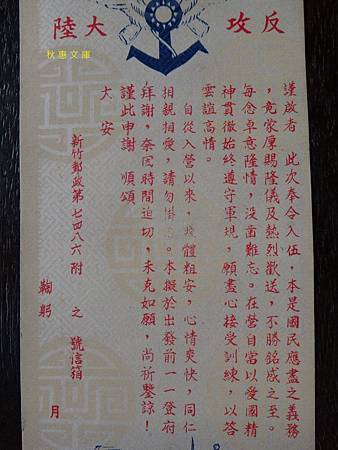 反攻大陸
秋惠文庫
謹啟者　此次奉令入伍，本是國民應盡之義務
，竟蒙厚賜隆儀及熱烈歡送，不勝銘感之至。
每念卓意隆情，沒齒難忘。在營自當以愛國精
神貫徹始終遵守軍規，願盡心接受訓練，以答
雲誼高情。
自從入營以來，體粗安，心情爽快，同仁
相親相愛，請勿掛。本擬於出發前一一登府
拜謝，奈因時間迫切，未克如願，尚祈鑒諒！
謹此申謝　順頌
大安
新竹郵政第七四八六附　之　號信箱
鞠躬
月